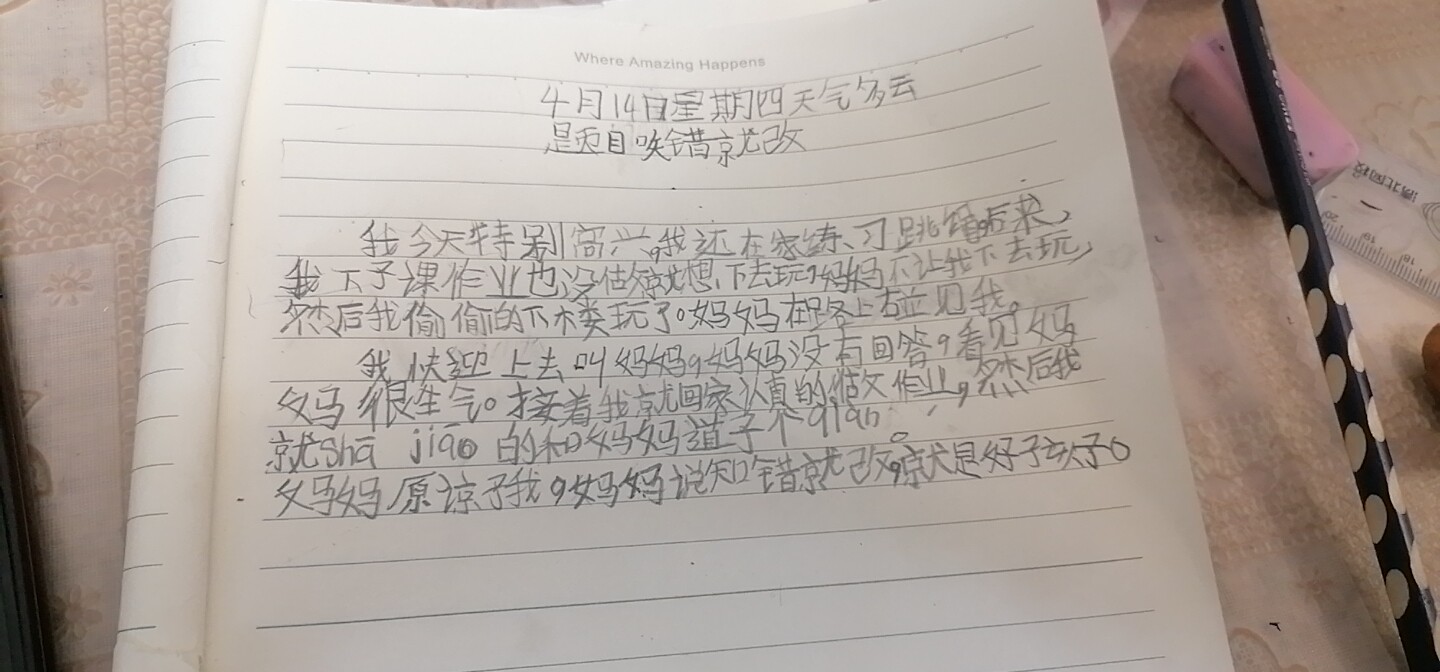 Where Amazing Happens
4月14日星期四天气多云
题目 错就改
我今天特别高兴,我还在家练习跳绳,后来,
我下了课作业也没做就想下去玩,妈妈不让我下去玩,
然后我偷偷的下楼玩了。妈妈在路上碰见我。
我快迎上去叫妈妈,妈妈没有回答,看见妈
妈很生气。接着我就回家认真的做作业,然后我
就shā jiāo的和妈妈道了个qian。
妈妈原谅了我,妈妈说知错就改,就是好孩子。